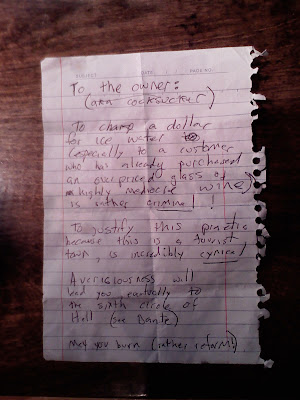 SUBJECT DATE PAGE NO.
To the owner:
(aka cocksucker)
To charge a dollar
for ice water
(especially to a customer
who has already purchased
an overpriced glass of
highly mediocre wine)
is rather criminal!
To justify this practice
because this is a tourist
town, is incredibly cynical
Avariciousness will
lead you eventually to
the sixth circle of
Hell (see Dante)
May you burn (rather reform!)